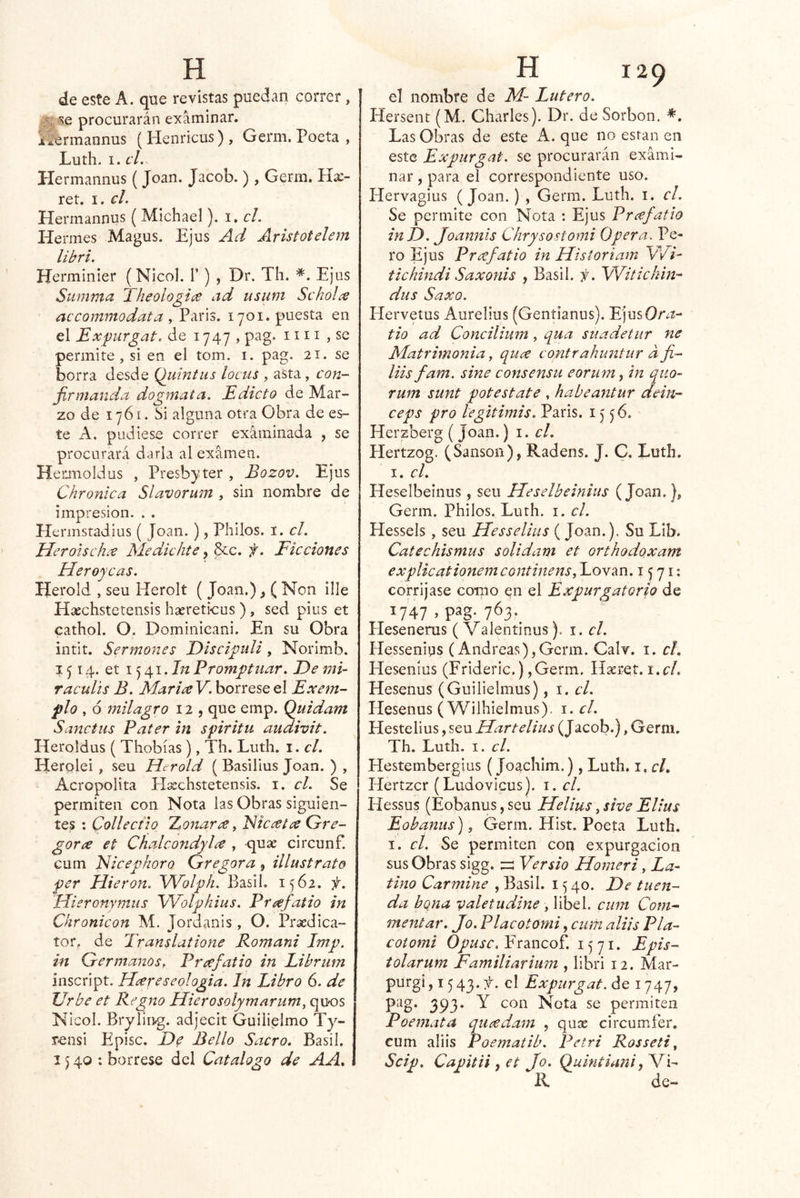 H
de este A. que revistas puedan correr,
se procurarán exâminar.
Hermannus (Henricus), Germ. Poeta,
Luth. 1. cl.
Hermannus (Joan. Jacob.), Germ. Hæ-
ret. 1. cl.
Hermannus (Michael). 1. cl.
Hermes Magus. Ejus Ad Aristotelem
libri.
Herminier (Nicol. l'), Dr. Th. *. Ejus
Summa Theologiæ ad usum Scholæ
accommodata, Paris. 1701. puesta en
el Expurgat. de 1747, pag. 1111, se
permite, si en el tom. 1. pag. 21. se
borra desde Quintus locus, asta, con-
firmanda dogmata. Edicto de Mar-
zo de 1761. Si alguna otra Obra de es-
te A. pudiese correr exâminada, se
procurará darla al exâmen.
Hermoldus, Presbyter, Bozov. Ejus
Chronica Slavorum, sin nombre de
impresion. . .
Hermstadius (Joan.), Philos. 1. cl.
Heroischæ Medichte, &c. ꝟ. Ficciones
Heroycas.
Herold, seu Herolt (Joan.), (Non ille
Hæchstetensis hæreticus), sed pius et
cathol. O. Dominicani. En su Obra
intit. Sermones Discipuli, Norimb.
1514. et 1541. In Promptuar. De mi-
raculis B. Mariæ V. borrese el Exem-
plo, ó milagro 12, que emp. Quidam
Sanctus Pater in spiritu audivit.
Heroldus (Thobías), Th. Luth. 1. cl.
Herolei, seu Herold (Basilius Joan.),
Acropolita Hæchstetensis. 1. cl. Se
permiten con Nota las Obras siguien-
tes: Collectio Zonaræ, Nicætæ Gre-
goræ et Chalcondylæ, quæ circunf.
cum Nicephoro Gregora, illustrato
per Hieron. Wolph. Basil. 1562. ꝟ.
Hieronymus Wolphius. Præfatio in
Chronicon M. Jordanis, O. Prædica-
tor. de Translatione Romani Imp.
in Germanos. Præfatio in Librum
inscript. Hæreseologia. In Libro 6. de
Urbe et Regno Hierosolymarum, quos
Nicol. Bryling. adjecit Guilielmo Ty-
rensi Episc. De Bello Sacro. Basil.
1540: borrese del Catalogo de AA.
H 129
el nombre de M- Lutero.
Hersent (M. Charles). Dr. de Sorbon. *.
Las Obras de este A. que no estan en
este Expurgat. se procurarán exâmi-
nar, para el correspondiente uso.
Hervagius (Joan.), Germ. Luth. 1. cl.
Se permite con Nota: Ejus Præfatio
in D. Joannis Chrysostomi Opera. Pe-
ro Ejus Præfatio in Historiam Wi-
tichindi Saxonis, Basil. ꝟ. Witichin-
dus Saxo.
Hervetus Aurelius (Gentianus). Ejus Ora-
tio ad Concilium, qua suadetur ne
Matrimonia, quæ contrahuntur à fi-
liis fam. sine consensu eorum, in quo-
rum sunt potestate, habeantur dein-
ceps pro legitimis. Paris. 1556.
Herzberg (Joan.) 1. cl.
Hertzog. (Sanson), Radens. J. C. Luth.
1. cl.
Heselbeinus, seu Heselbeinius (Joan.),
Germ. Philos. Luth. 1. cl.
Hessels, seu Hesselius (Joan.). Su Lib.
Catechismus solidam et orthodoxam
explicationem continens, Lovan. 1571:
corrijase como en el Expurgatorio de
1747, pag. 763.
Hesenerus (Valentinus). 1. cl.
Hessenius (Andreas), Germ. Calv. 1. cl.
Hesenius (Frideric.), Germ. Hæret. 1. cl.
Hesenus (Guilielmus), 1. cl.
Hesenus (Wilhielmus). 1. cl.
Hestelius, seu Hartelius (Jacob.), Germ.
Th. Luth. 1. cl.
Hestembergius (Joachim.), Luth. 1. cl.
Hertzer (Ludovicus). 1. cl.
Hessus (Eobanus, seu Helius, sive Elius
Eobanus), Germ. Hist. Poeta Luth.
1. cl. Se permiten con expurgacion
sus Obras sigg. = Versio Homeri, La-
tino Carmine, Basil. 1540. De tuen-
da bona valetudine, libel. cum Com-
mentar. Jo. Placotomi, cum aliis Pla-
cotomi Opusc. Francof. 1571. Epis-
tolarum Familiarium, libri 12. Mar-
purgi, 1543. ꝟ. el Expurgat. de 1747,
pag. 393. Y con Nota se permiten
Poemata quædam, quæ circumfer.
cum aliis Poematib. Petri Rosseti,
Scip. Capitii, et Jo. Quintiani, Vi-
R de-